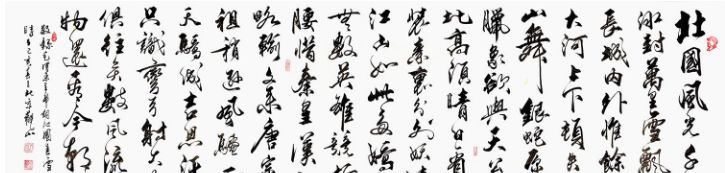 北國風光千
冰封萬里雪飄
長城内外惟餘
大河上下頓失
山舞銀蛇原
臘象欲與天公
比高須晴日看
裝素裹分外妖
江山如此多嬌
無數英雄競
腰惜秦皇漢
略輸文采唐宗
祖稍遜風騷一
天驕成吉思汗
只識彎弓射大
俱往矣數風流
物還看今朝
毛澤東主席詞沁園春雪